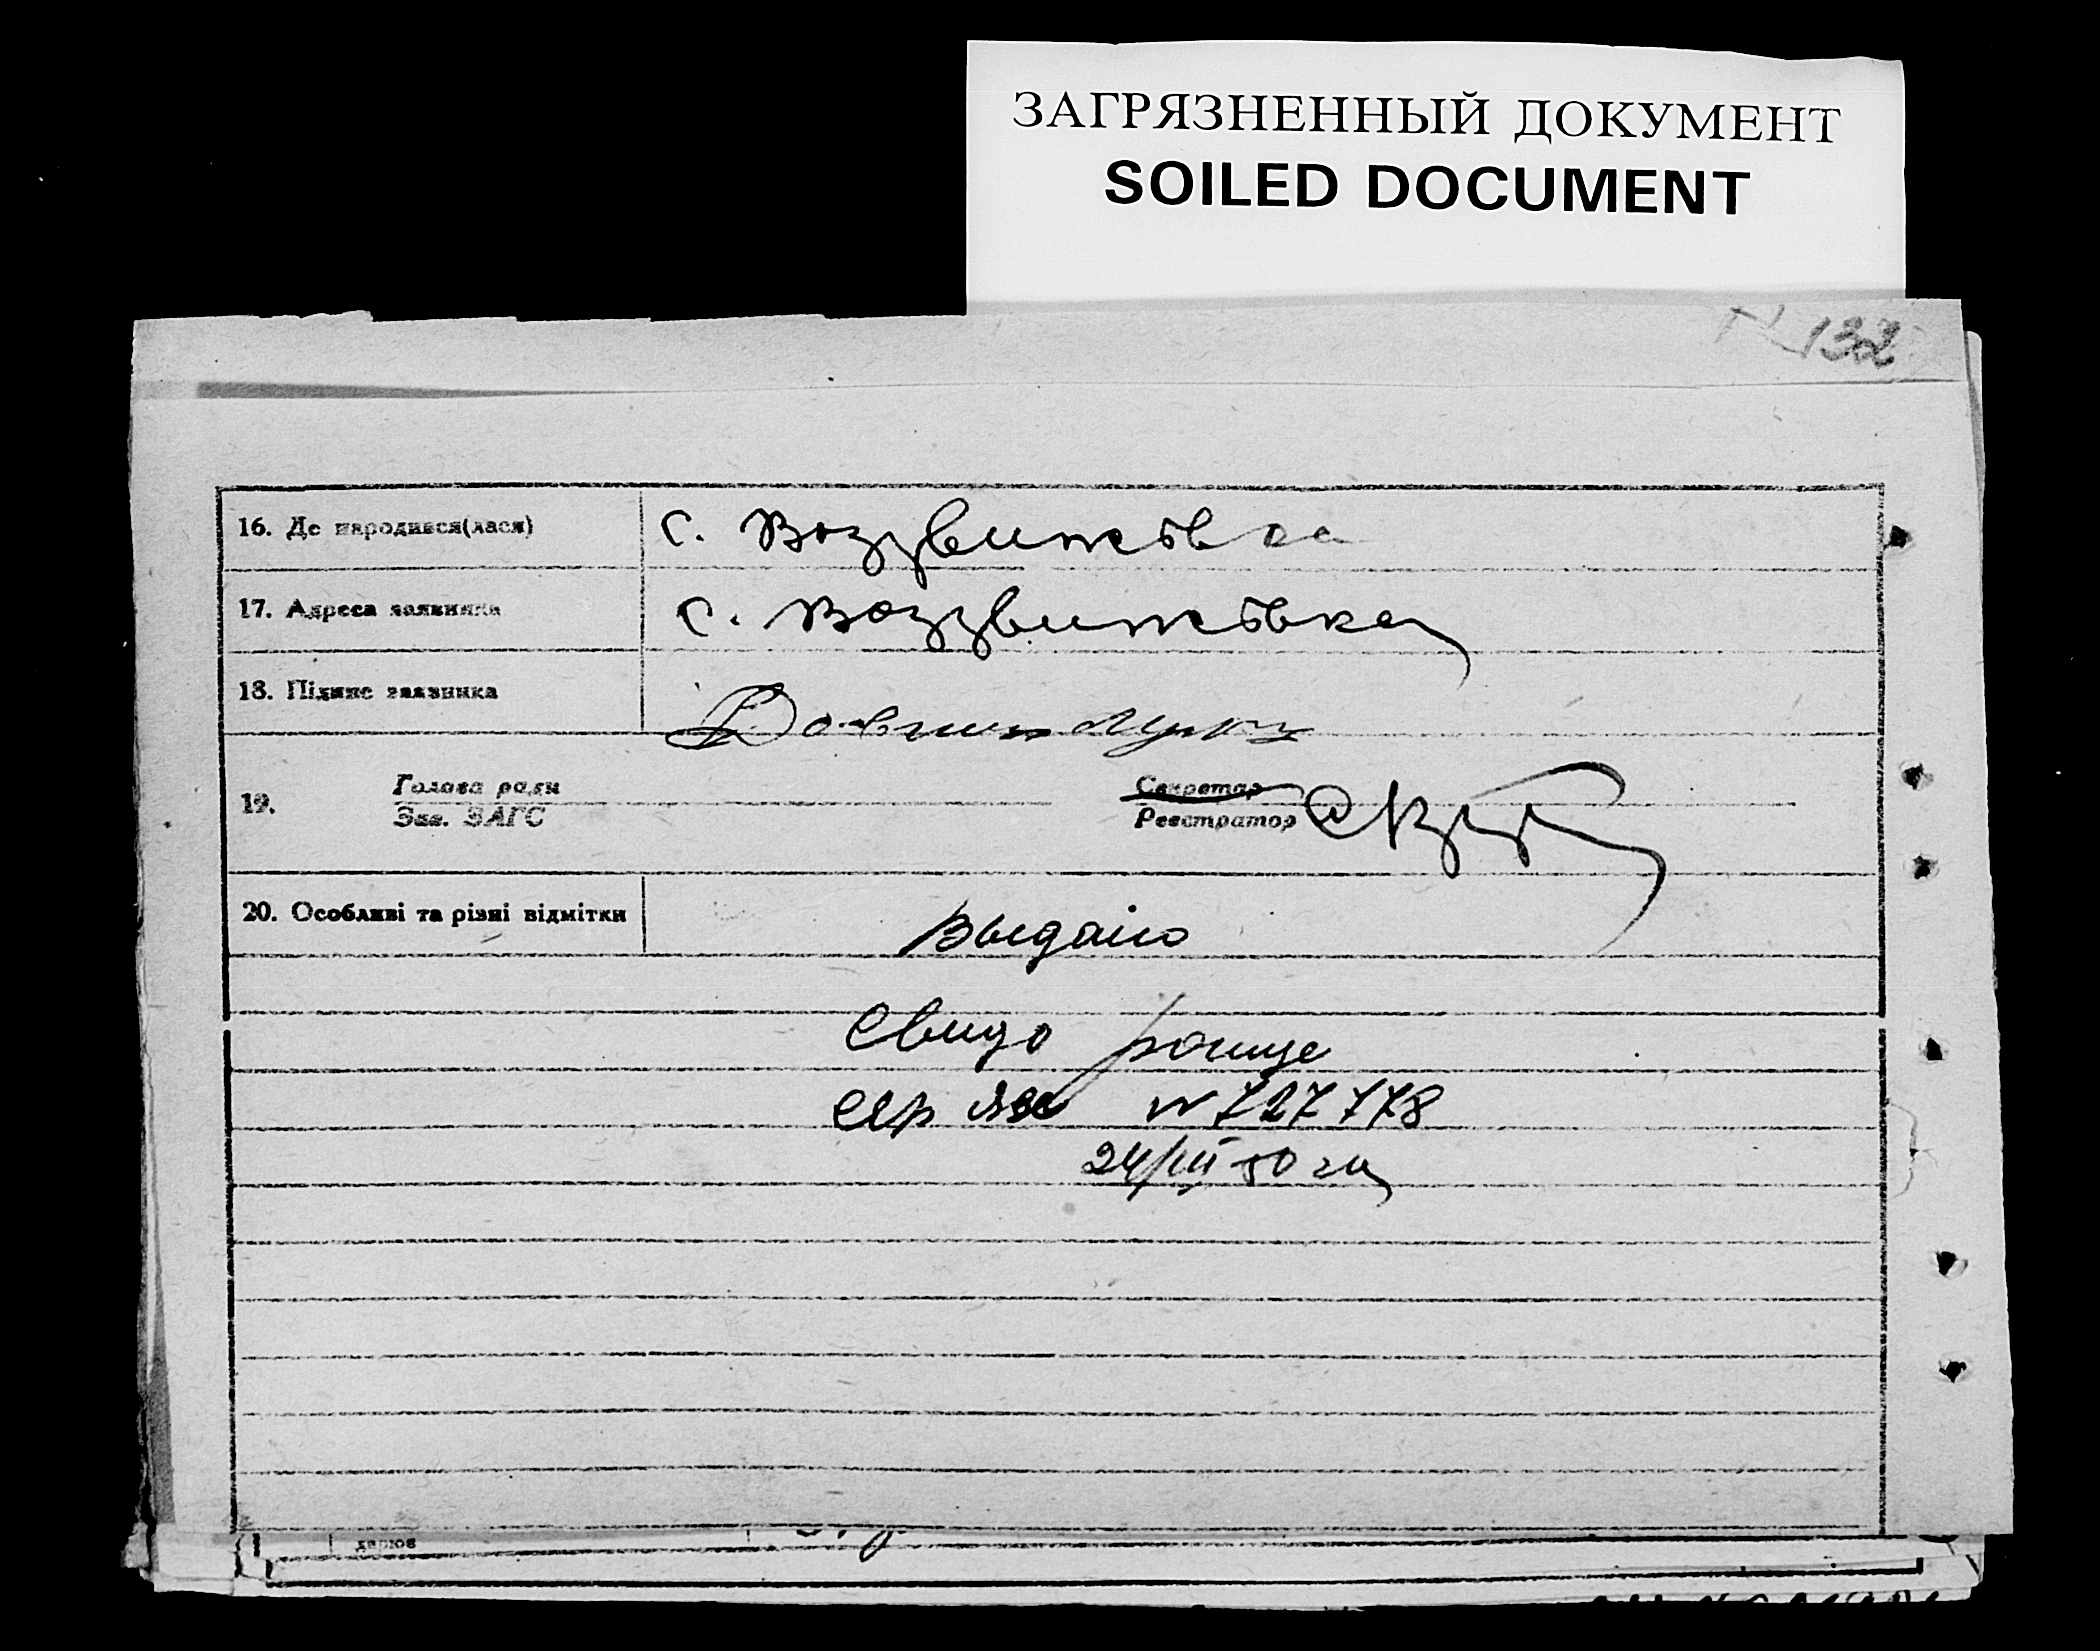 ЗАГРЯЗНЕННЫЙ ДОКУМЕНТ
SOILED DOCUMENT
N 132
16. Де народився(лася) с. Воздвижовка
17. Адреса заявника с. Воздвижовка
18. Підпис заявника
19. Голова ради Секретар
Зав. ЗАГС Реєстратор
20. Особливі та різні відмітки Выдано
свидо рание
сер № 727778
24/VII 50 г